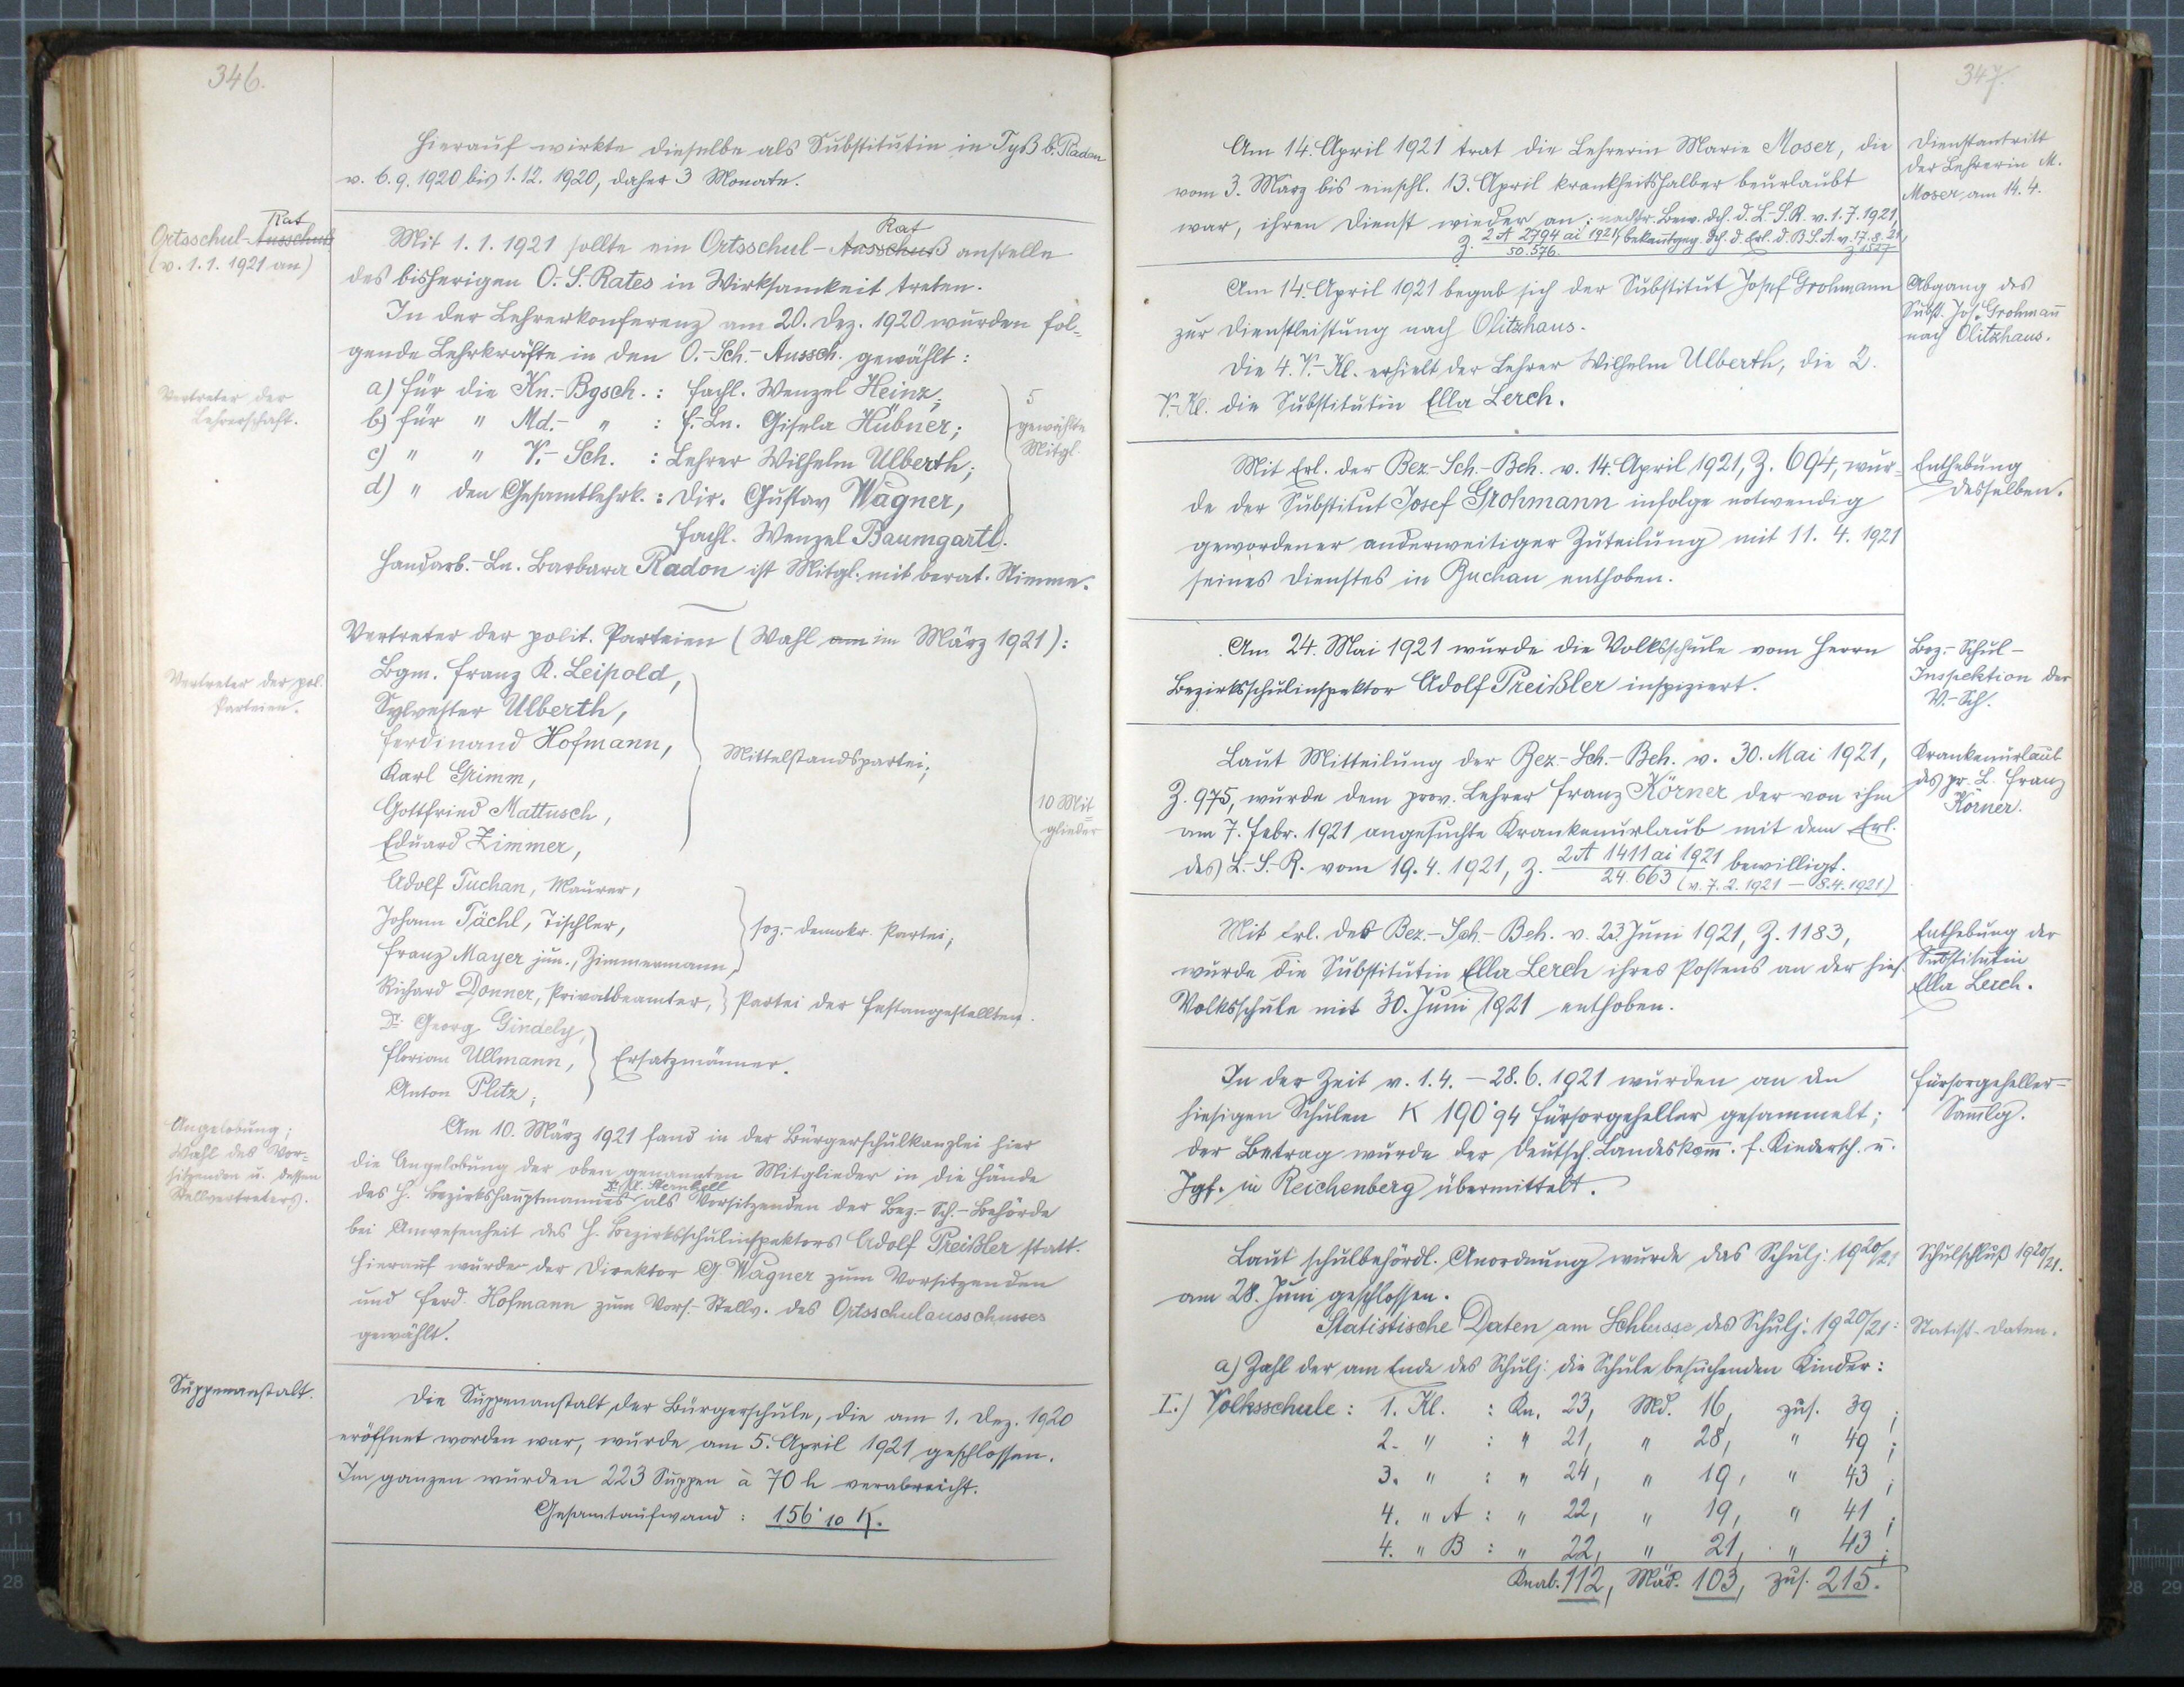 346.
Hierauf wirkte dieselbe als Substitutin in Tyß b. Radon
v. 6.9.1920 bis 1.12.1920, daher 3 Monate.
Rat
Ortsschul-Ausschuß
(v. 1.1.1921 an)
Rat
Mit 1.1.1921 sollte ein Ortsschul-Ausschuß anstelle
des bisherigen O.-S. Rates in Wirksamkeit treten.
In der Lehrerkonferenz am 20. Dez. 1920 wurden fol-
gende Lehrkräfte in den O.-Sch.-Aussch. gewählt:
Vertreter der
Lehrerschaft.
a) für die Kn.-Bgsch. : Fachl. Wenzel Heinz;
b) für " Md.- " : F.-Ln. Gisela Hübner;
c) " " V.-Sch. : Lehrer Wilhelm Ulberth;
d) " den Gesamtlehrk. : Dir. Gustav Wagner,
Fachl. Wenzel Baumgartl.
5
gewählte
Mitgl.
Handarb.-Ln. Barbara Radon ist Mitgl. mit berat. Stimme.
Vertreter der polit. Parteien (Wahl am im März 1921):
Vertreter der pol.
Parteien.
Bgm. Franz R. Leipold,
Sylvester Ulberth,
Ferdinand Hofmann,
Karl Grimm,
Gottfried Mattusch,
Eduard Zimmer,
Mittelstandspartei;
10 Mit-
glieder
Adolf Tuchan, Maurer,
Johann Tächl, Tischler,
Franz Mayer jun., Zimmermann,
soz.-demokr. Partei;
Richard Donner, Privatbeamter, Partei der Festangestellten.
Dr. Georg Gindely,
Florian Ullmann,
Anton Plitz;
Ersatzmänner.
Angelobung;
Wahl des Vor-
sitzenden u. dessen
Stellvertreters.
Am 10. März 1921 fand in der Bürgerschulkanzlei hier
die Angelobung der oben genannten Mitglieder in die Hände
des H. Bezirkshauptmannes als Vorsitzenden der Bez.-Sch.-Behörde
bei Anwesenheit des H. Bezirksschulinspektors Adolf Preißler statt.
Hierauf wurde der Direktor G. Wagner zum Vorsitzenden
und Ferd. Hofmann zum Vors.-Stellv. des Ortsschulausschusses
gewählt.
Suppenanstalt.
Die Suppenanstalt der Bürgerschule, die am 1. Dez. 1920
eröffnet worden war, wurde am 5. April 1921 geschlossen.
Im ganzen wurden 223 Suppen à 70 h verabreicht.
Gesamtaufwand : 156·10 K.
347.
Am 14. April 1921 trat die Lehrerin Marie Moser, die
vom 3. März bis einschl. 13. April krankheitshalber beurlaubt
war, ihren Dienst wieder an; nachtr. Bew. dch. d. L.-S.R. v. 1.7.1921,
Z. 2A 2794 ai 1921/50.576, bekanntgeg. dch. d. Erl. d. B.S.A. v. 17.8.21, Z. 1527
Dienstantritt
der Lehrerin M.
Moser am 14.4.
Am 14. April 1921 begab sich der Substitut Josef Grohmann
zur Dienstleistung nach Olitzhaus.
Die 4. V.-Kl. erhielt der Lehrer Wilhelm Ulberth, die 2.
V.-Kl. die Substitutin Ella Lerch.
Abgang des
Subst. Jos. Grohmañ
nach Olitzhaus.
Mit Erl. der Bez.-Sch.-Bch. v. 14. April 1921, Z. 694, wur-
de der Substitut Josef Grohmann infolge notwendig
gewordener anderweitiger Zuteilung mit 11. 4. 1921
seines Dienstes in Buchau enthoben.
Enthebung
desselben.
Am 24. Mai 1921 wurde die Volksschule vom Herrn
Bezirksschulinspektor Adolf Preißler inspiziert.
Bez.-Schul-
Inspektion der
V.-Sch.
Laut Mitteilung der Bez.-Sch.-Beh. v. 30. Mai 1921,
Z. 975, wurde dem prov. Lehrer Franz Körner der von ihm
am 7. Febr. 1921 angesuchte Krankenurlaub mit dem Erl.
des L.-S.-R. vom 19.4.1921, Z. 2A 1411 ai 1921/24.663 bewilligt.
(v. 7.2.1921 – 8.4.1921)
Krankenurlaub
des pr. L. Franz
Körner.
Mit Erl. des Bez.-Sch.-Beh. v. 23. Juni 1921, Z. 1183,
wurde die Substitutin Ella Lerch ihres Postens an der hies.
Volksschule mit 30. Juni 1921 enthoben.
Enthebung der
Substitutin
Ella Lerch.
In der Zeit v. 1.4. – 28.6.1921 wurden an den
hiesigen Schulen K 190·94 Fürsorgeheller gesammelt;
der Betrag wurde der Deutsch. Landeskom̄. f. Kindersch. u.
Jgf. in Reichenberg übermittelt.
Fürsorgeheller-
Samlg.
Laut schulbehördl. Anordnung wurde das Schulj. 1920/21
am 28. Juni geschlossen.
Schulschluß 1920/21.
Statistische Daten am Schlusse des Schulj. 1920/21:
Statist. Daten.
a) Zahl der am Ende des Schulj. die Schule besuchenden Kinder:
I.) Volksschule : 1. Kl. : Kn. 23, Md. 16, zus. 39;
2. " : " 21, " 28, " 49;
3. " : " 24, " 19, " 43;
4. " A : " 22, " 19, " 41;
4. " B : " 22, " 21, " 43;
Knab. 112, Mäd. 103, zus. 215.